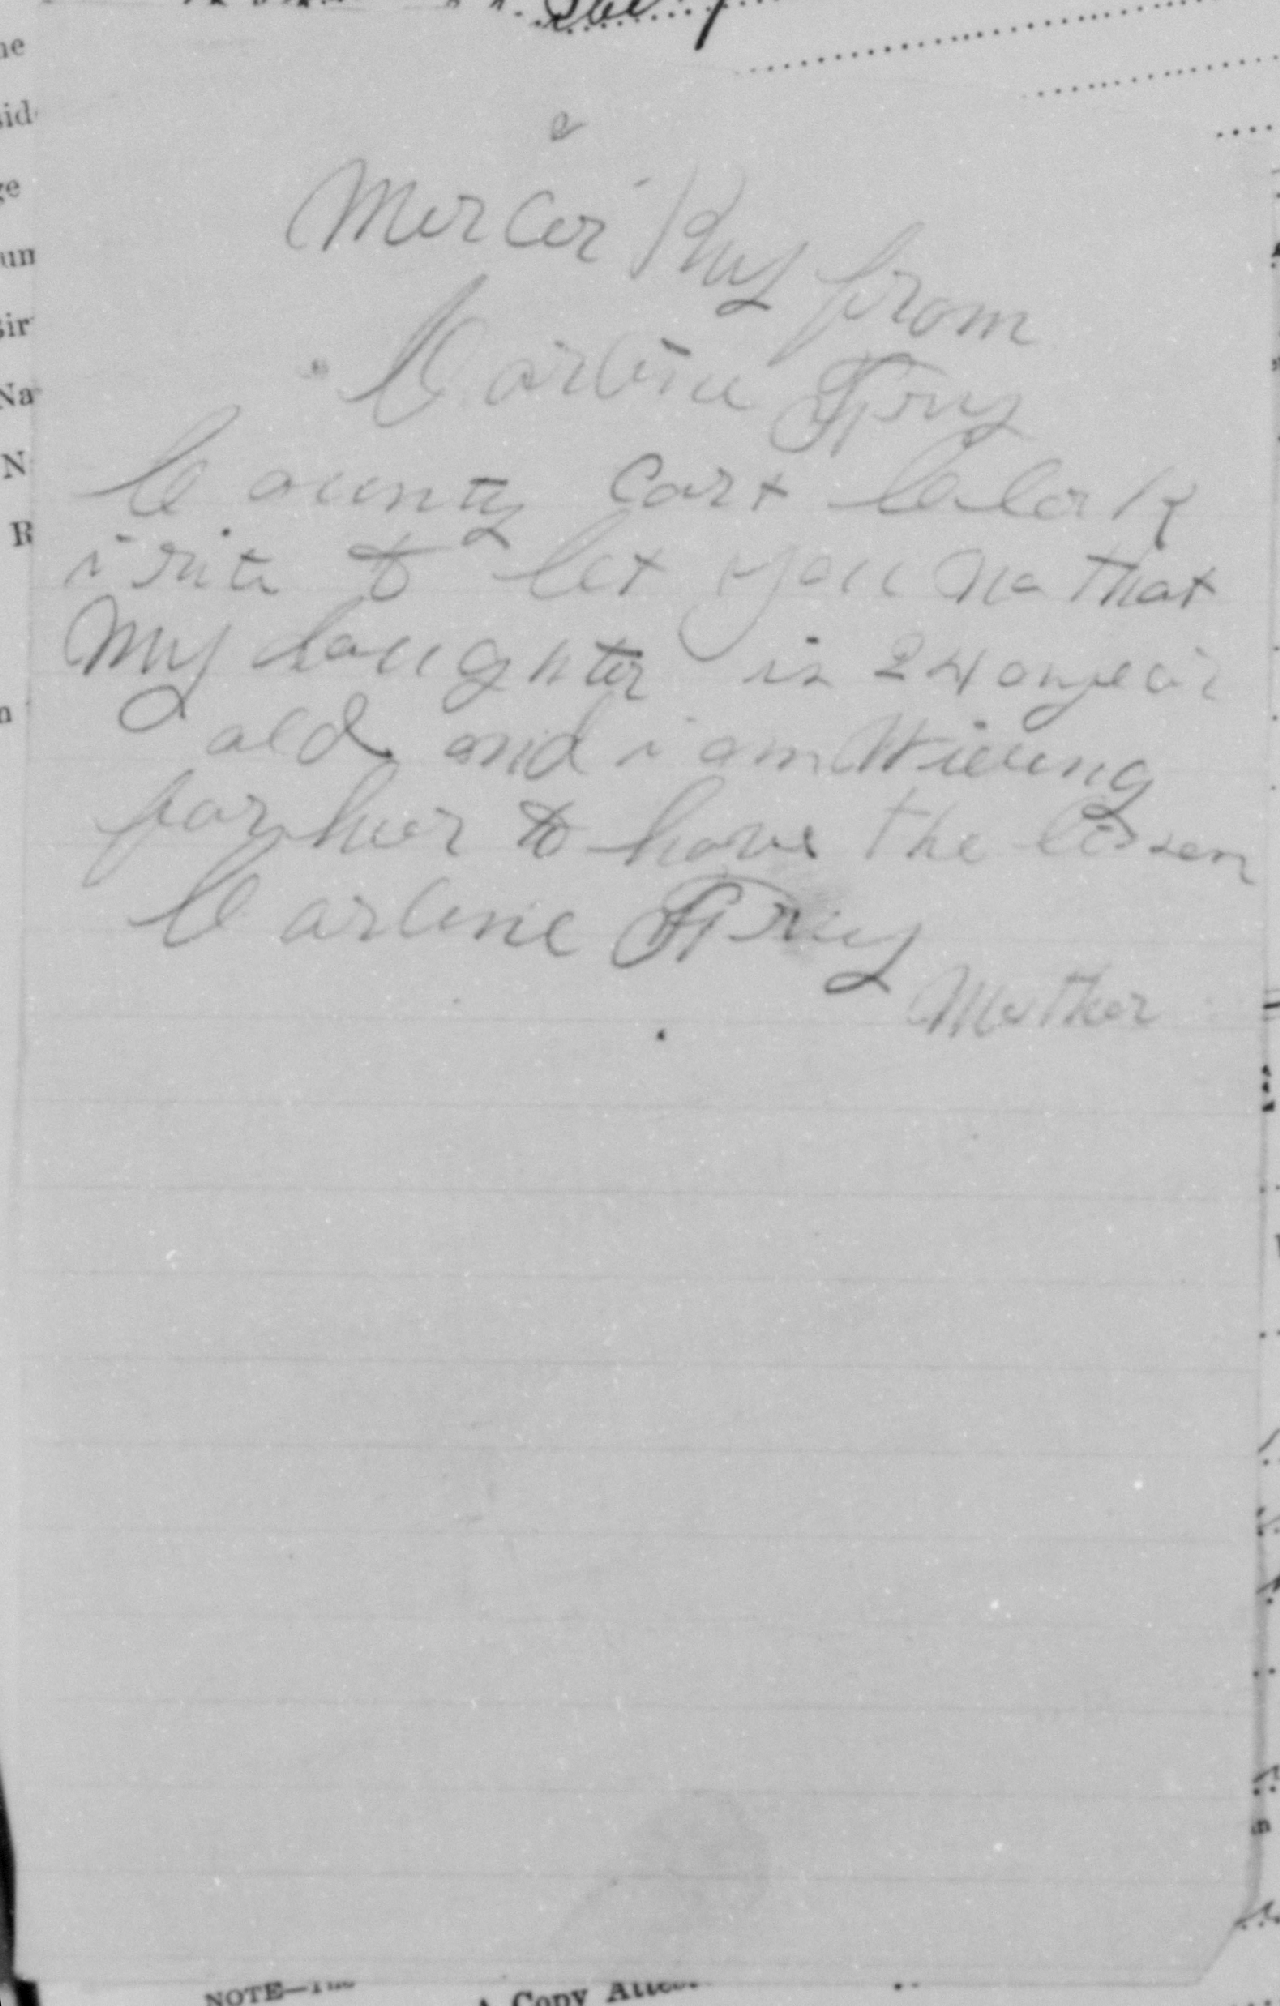 Mercer Kuy from
Carline Fruy
County Cort Clerk
i rite to let you no that
My daughter is 24 o year
old and i am Wieling
for heer to have the lisen
Carline Fruy
Mother
NOTE—The
A Copy Attest